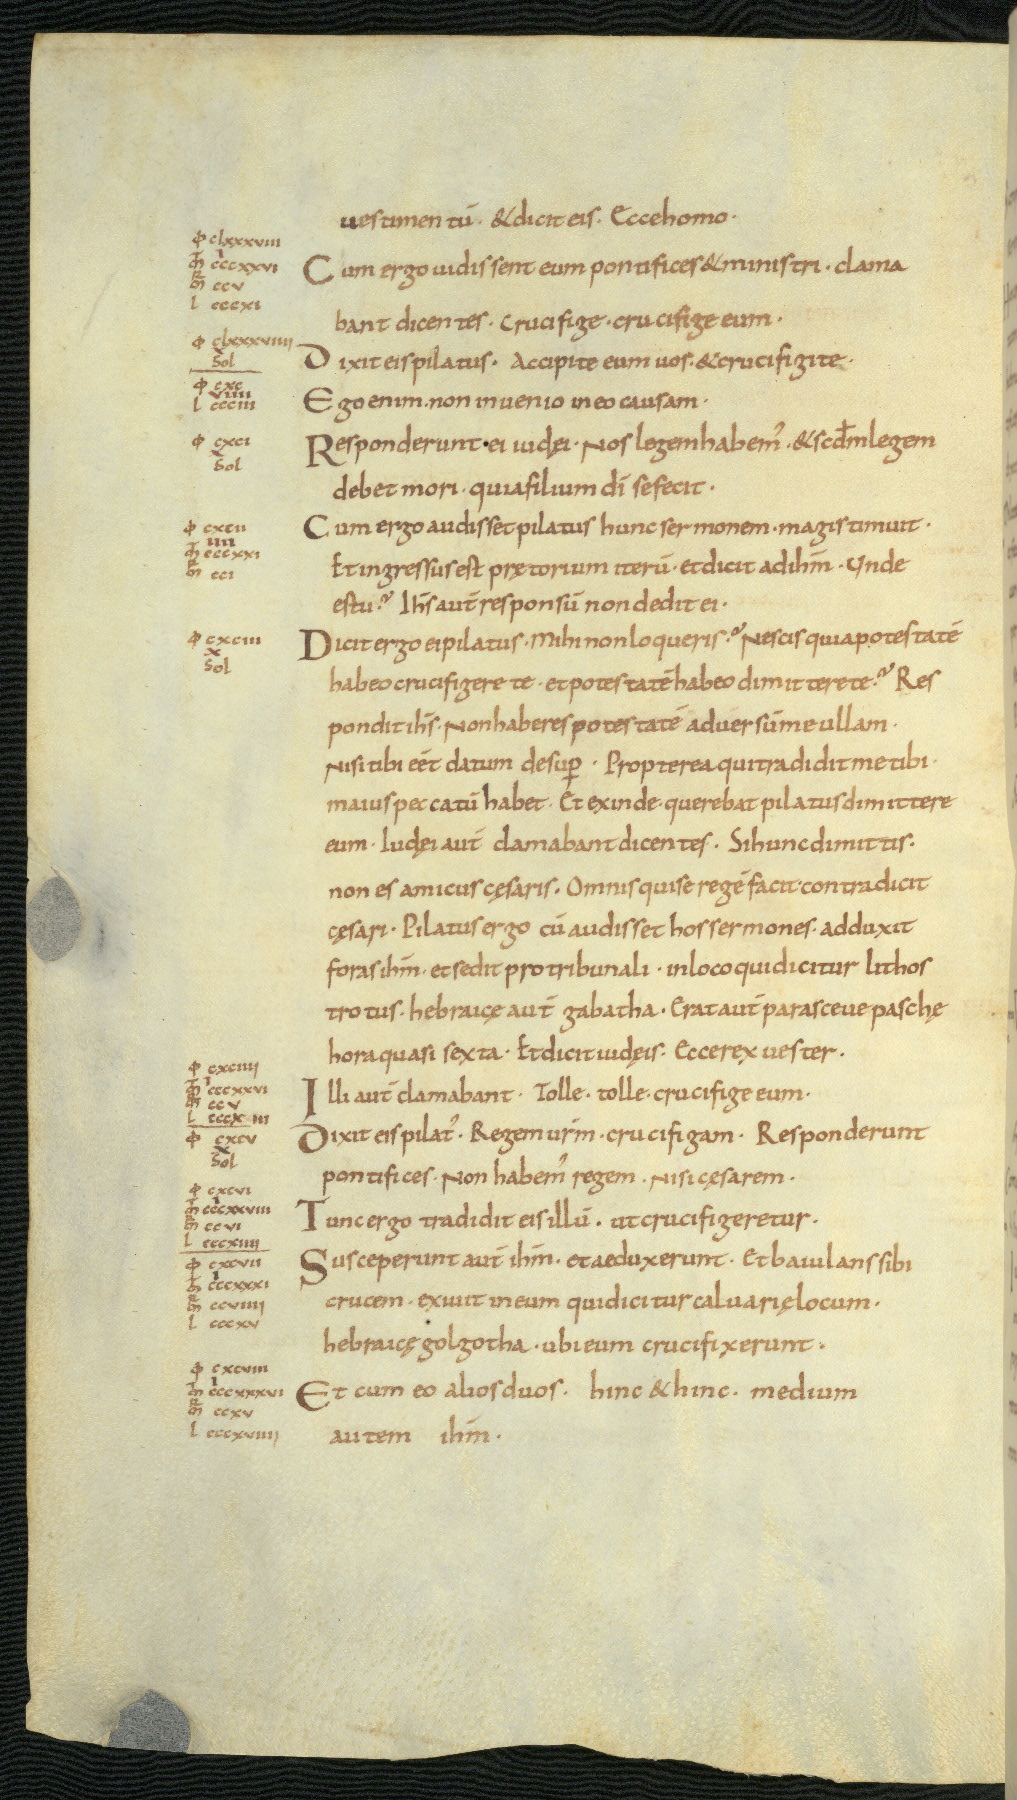 uestimentū · & dicit eis · Ecce homo ·
ⲫ clxxxviii
m̄ cccxxvi
i
m̄ R ccv
l cccxi
Cum ergo uidissent eum pontifices & ministri · clama
bant dicentes · Crucifige · crucifige eum ·
ⲫ clxxxviiii
x
Sol
Dixit eis pilatus · Accipite eum uos · & crucifigite ·
ⲫ cxc
viiii
l ccciii
Ego enim · non inuenio in eo causam ·
ⲫ cxci
x
Sol
Responderunt · ei iudęi · Nos legem habem' · & scd̄m legem
debet mori · quia filium dī se fecit ·
ⲫ cxcii
iiii
m̄ cccxxi
m̄ R cci
Cum ergo audisset pilatus hunc sermonem · magis timuit ·
Et ingressus est prętorium iterū · et dicit ad ihm̄ · Vnde
es tu? Ihs̄ aut̄ responsū non dedit ei ·
ⲫ cxciii
x
Sol
Dicit ergo ei pilatus · Mihi non loqueris? Nescis quia potestatē
habeo crucifigere te · et potestatē habeo dimittere te? Res
pondit ihs̄ · Non haberes potestatē aduersū me ullam ·
Nisi tibi eēt datum desup̄ · Propterea qui tradidit me tibi ·
maius peccatū habet · Et exinde · querebat pilatus dimittere
eum · Iudęi aut̄ clamabant dicentes · Si hunc dimittis ·
non es amicus cęsaris · Omnis qui se regē facit · contradicit
cęsari · Pilatus ergo cū audisset hos sermones · adduxit
foras ihm̄ · et sedit pro tribunali · in loco qui dicitur lithos
trotus · hebraicę aut̄ gabatha · Erat aut̄ parasceue paschę
hora quasi sexta · Et dicit iudęis · Ecce rex uester ·
ⲫ cxciiii
i
m̄ cccxxvi
m̄ R ccv
l cccx iii
Illi aut̄ clamabant · Tolle · tolle · crucifige eum ·
ⲫ cxcv
x
Sol
Dixit eis pilat' · Regem urm̄ · crucifigam · Responderunt
pontifices · Non habem' regem · Nisi cęsarem ·
ⲫ cxcvi
i
m̄ cccxxviii
m̄ R ccvi
l cccxiiii
Tunc ergo tradidit eis illū · ut crucifigeretur ·
ⲫ cxcvii
i
m̄ cccxxxi
m̄ R ccviiii
l cccxv
Susceperunt aut̄ ihm̄ · et aeduxerunt · Et baiulans sibi
crucem · exiuit in eum qui dicitur caluarię locum ·
hebraicę golgotha · ubi eum crucifixerunt ·
ⲫ cxcviii
i
m̄ cccxxxvi
m̄ R ccxv
l cccxviiii
Et cum eo alios duos · hinc & hinc · medium
autem ihm̄ ·